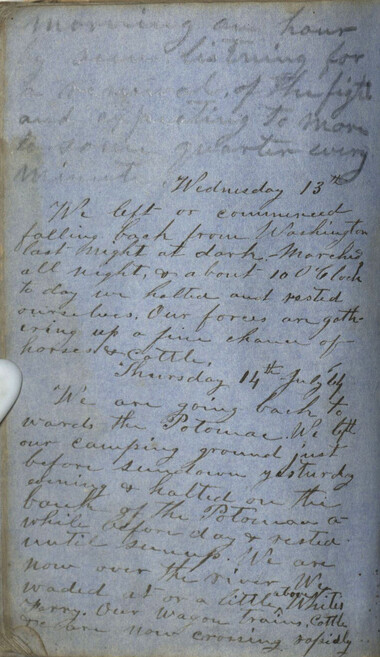 morning an hour
listening for
a renewal of the fight
and expecting to move
to some quarter every
minute
Wednesday 13th
We left or commenced
falling back from Washington
last night at dark. Marched
all night, & about 10 O'Clock
to day we halted and rested
ourselves. Our forces are gath-
ering up a fine chance of
horses & cattle.
Thursday 14th July 64
We are going back to
wards the Potomac. We left
our camping ground just
before sundown yesterday
evening & halted on the
bank of the Potomac a
while before day & rested
until sunup. We are
now over the river. We
waded at or a little above Whites
Ferry. Our wagon trains, Cattle
&c are now crossing rapidly